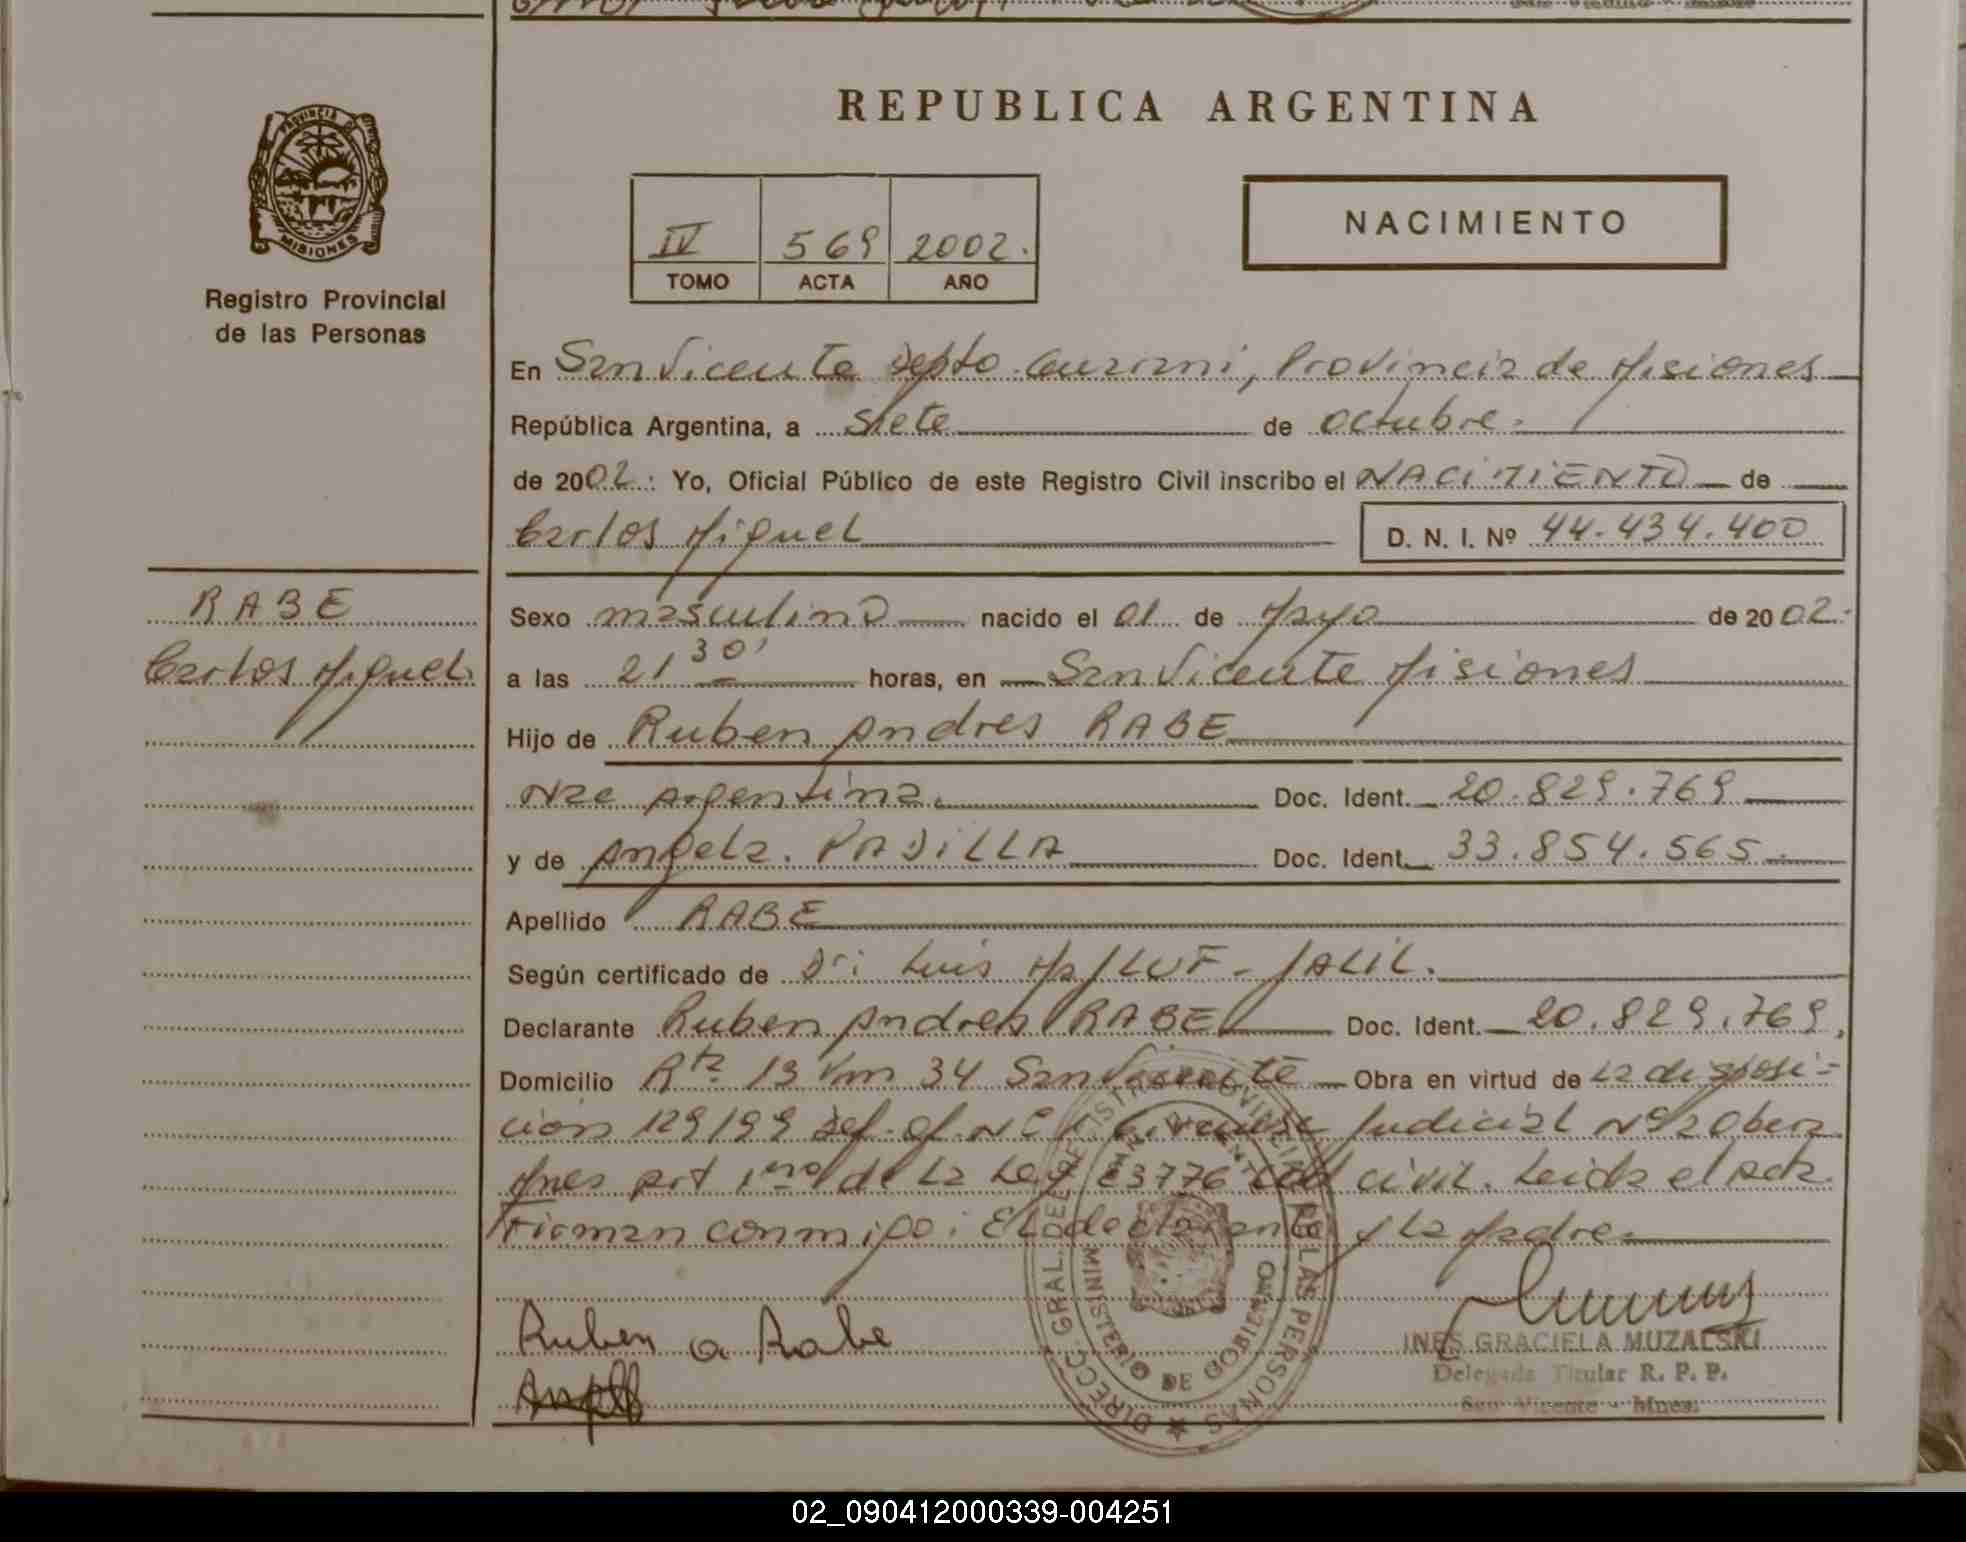 REPUBLICA ARGENTINA
PROVINCIA DE
MISIONES
Registro Provincial
de las Personas
IV 569 2002.
TOMO ACTA AÑO
NACIMIENTO
En San Vicente Depto. Guarani, Provincia de Misiones
República Argentina, a siete de octubre.
de 2002: Yo, Oficial Público de este Registro Civil inscribo el NACIMIENTO de
Carlos Miguel D. N. I. Nº 44.434.400
RABE
Carlos Miguel.
Sexo masculino nacido el 01 de Mayo de 2002.
a las 21 30' horas, en San Vicente Misiones
Hijo de Ruben Andres RABE
Nac Argentina. Doc. Ident. 20.829.769
y de Angela. PADILLA Doc. Ident. 33.854.565.
Apellido RABE
Según certificado de Dr: Luis JALIL.
Declarante Ruben Andres RABE Doc. Ident. 20.829.769,
Domicilio Rta. 13 Km 34 San Vicente Obra en virtud de La disposi-
cion 129/99 Def. of. Nº 1 Judicial Nº 2 Obera
Mnes Art 1ero de La Ley 23776 Cod civil. Leida el Acta
Firman conmigo: El declarante y La Madre.
Ruben A Rabe
DIRECC. GRAL. DEL REGISTRO PROVINCIAL DE LAS PERSONAS
MINISTERIO DE GOBIERNO
INES GRACIELA MUZALSKI
Delegada Titular R. P. P.
San Vicente - Mnes.
02_090412000339-004251